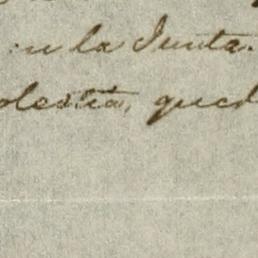 en la Junta.
molestia, qued